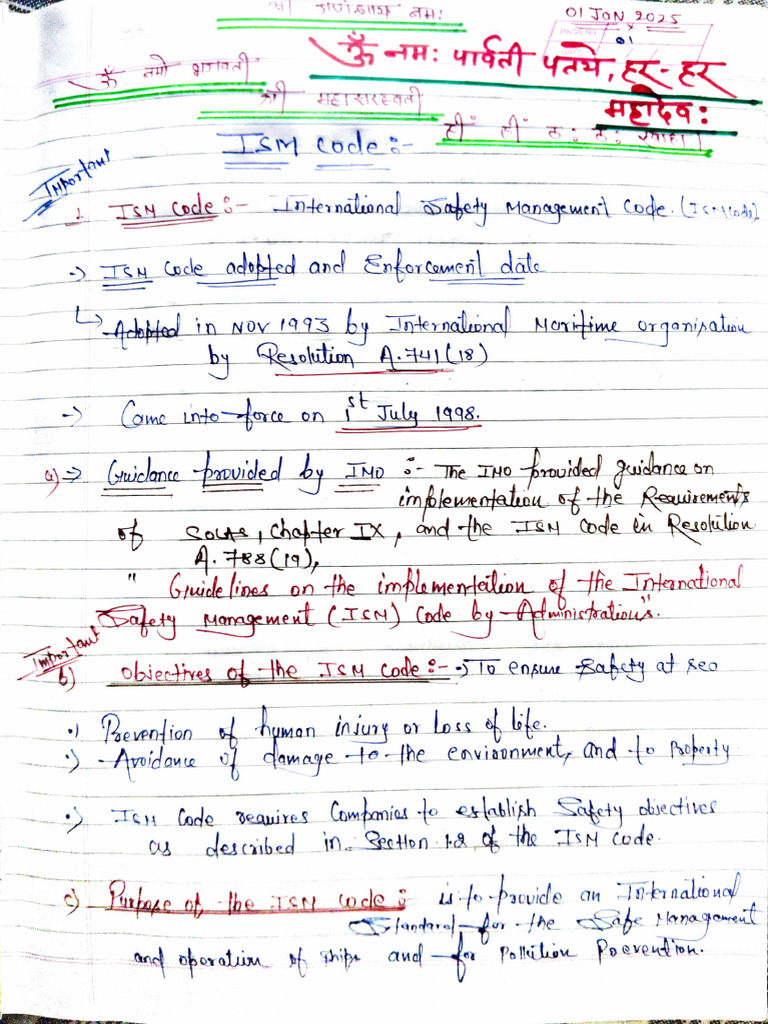 श्री गणेशाय नमः
01 JAN 2025
01
ॐ नमः पार्वती पतये, हर-हर
महादेव:
ॐ नमो भगवती
श्री महासरस्वती
ISM Code:-
Important
1. ISM Code:- International Safety Management Code. (ISM Code)
ISM Code adopted and Enforcement date
Adopted in NOV 1993 by International Maritime Organisation
by Resolution A.741(18)
Came into force on 1st July 1998.
a) ⇒ Guidance provided by IMO :- The IMO provided guidance on
implementation of the Requirements
of SOLAS, Chapter IX, and the ISM Code in Resolution
A.788(19),
"Guidelines on the implementation of the International
Safety Management (ISM) Code by Administrations".
Important
b) Objectives of the ISM Code:- To ensure Safety at sea
Prevention of human injury or loss of life.
Avoidance of damage to the environment, and to Property
ISM Code requires Companies to establish Safety objectives
as described in Section 1.2 of the ISM Code.
c) Purpose of the ISM Code: is to provide an International
Standard for the Safe Management
and operation of ships and for Pollution Prevention.